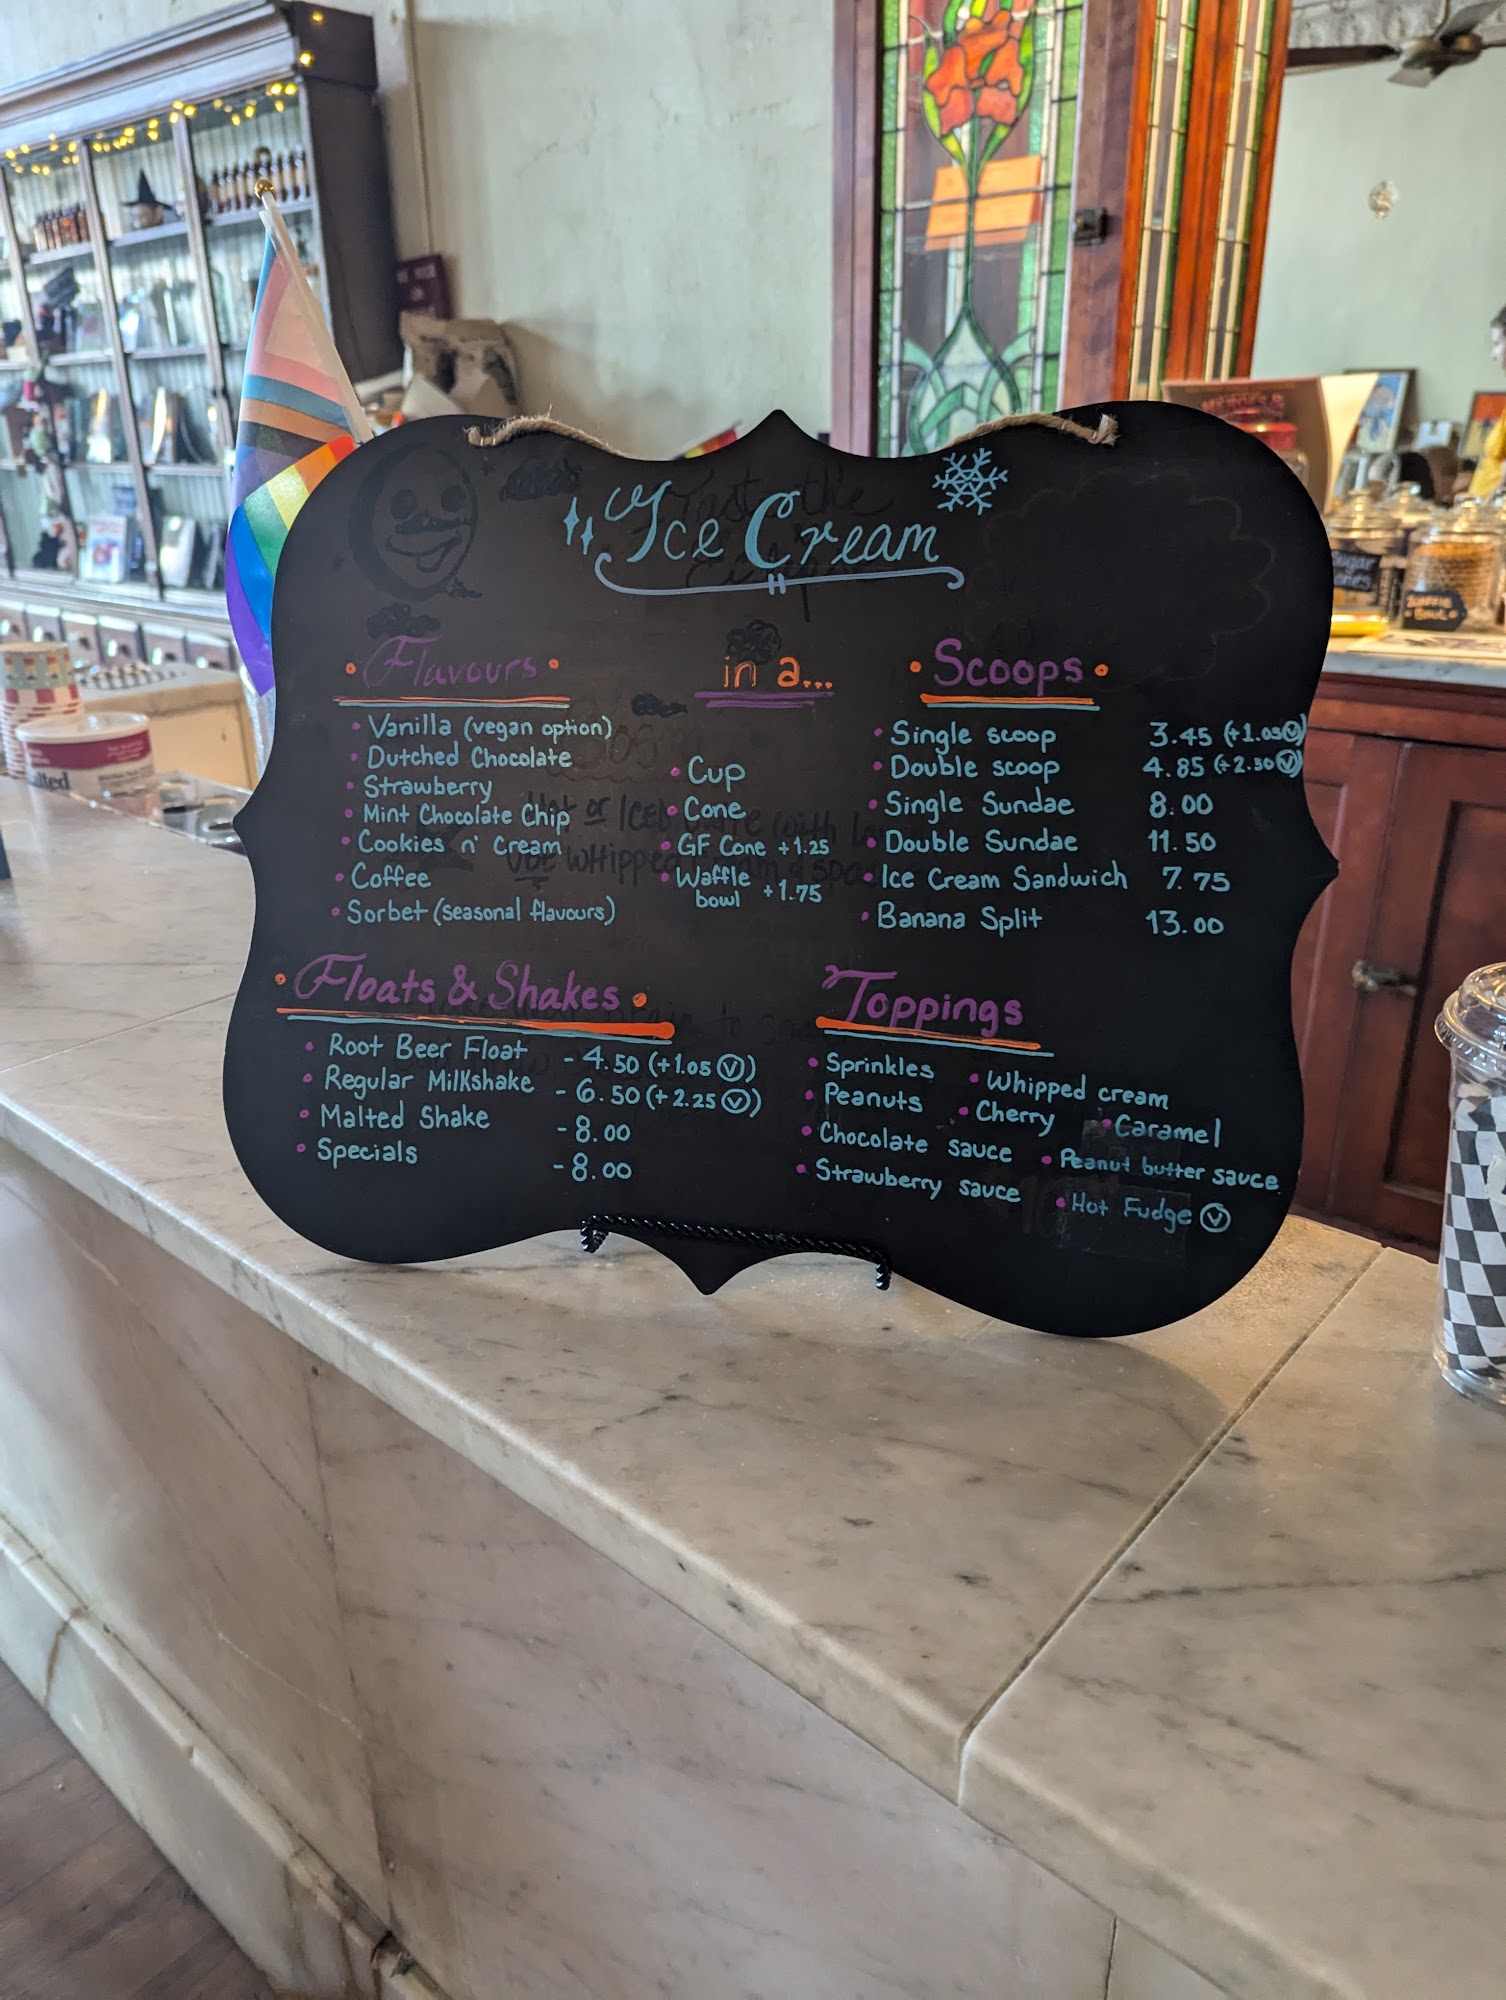 Ice Cream
Flavours
Vanilla (vegan option)
Dutched Chocolate
Strawberry
Mint Chocolate Chip
Cookies n' Cream
Coffee
Sorbet (seasonal flavours)
in a...
Cup
Cone
GF Cone +1.25
Waffle
bowl +1.75
Scoops
Single scoop 3.45 (+1.05 Ⓥ)
Double scoop 4.85 (+2.30 Ⓥ)
Single Sundae 8.00
Double Sundae 11.50
Ice Cream Sandwich 7.75
Banana Split 13.00
Floats & Shakes
Root Beer Float - 4.50 (+1.05 Ⓥ)
Regular Milkshake - 6.50 (+2.25 Ⓥ)
Malted Shake - 8.00
Specials - 8.00
Toppings
Sprinkles
Peanuts
Chocolate sauce
Strawberry sauce
Whipped cream
Cherry
Caramel
Peanut butter sauce
Hot Fudge Ⓥ
Sugar
Cones